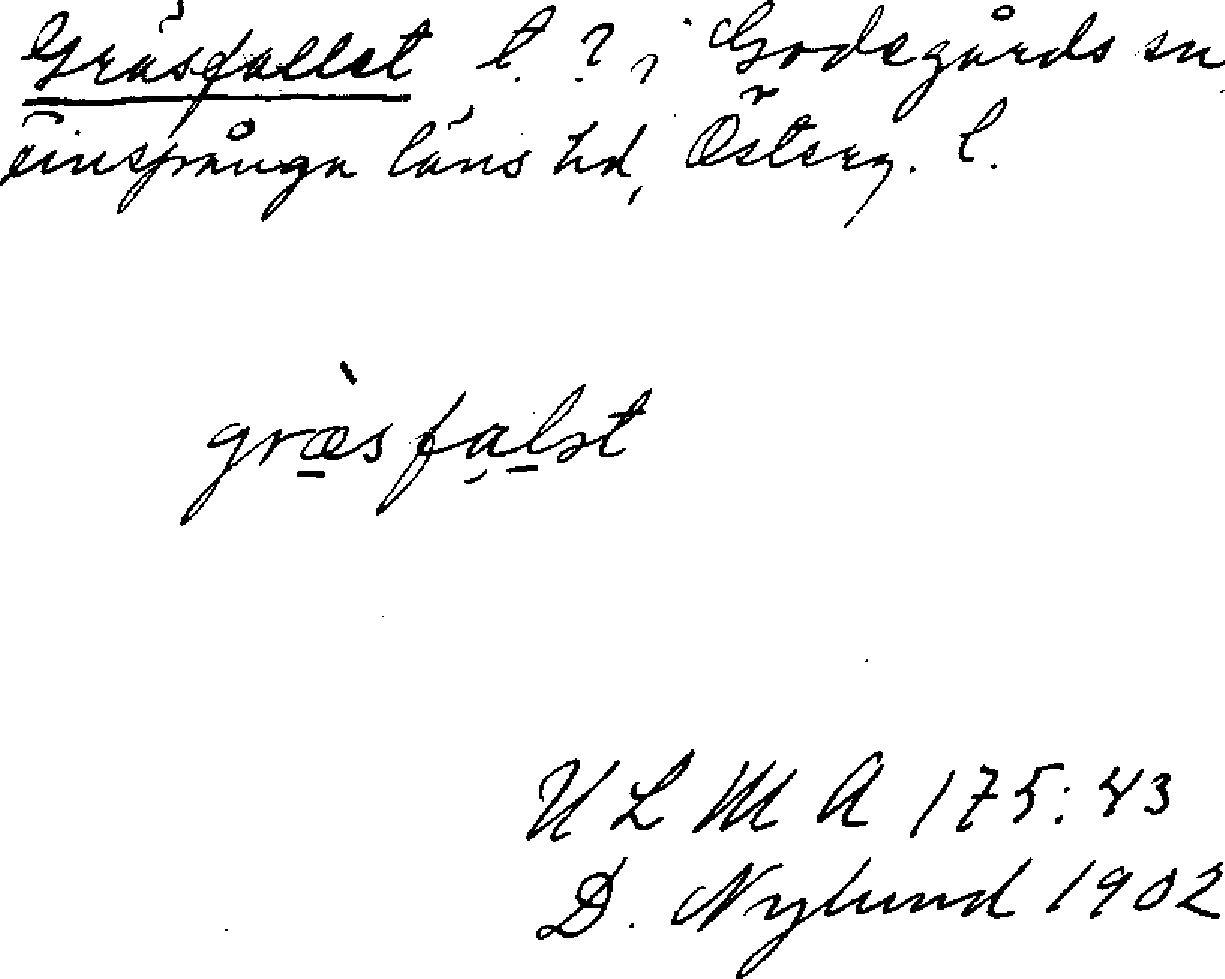 Gräsfallet t. ? i Godegårds sn
Finspånga läns hd, Österg. l.
græ̠̀sfa̖l̠ət
ULMA 175:43
D. Nylund 1902